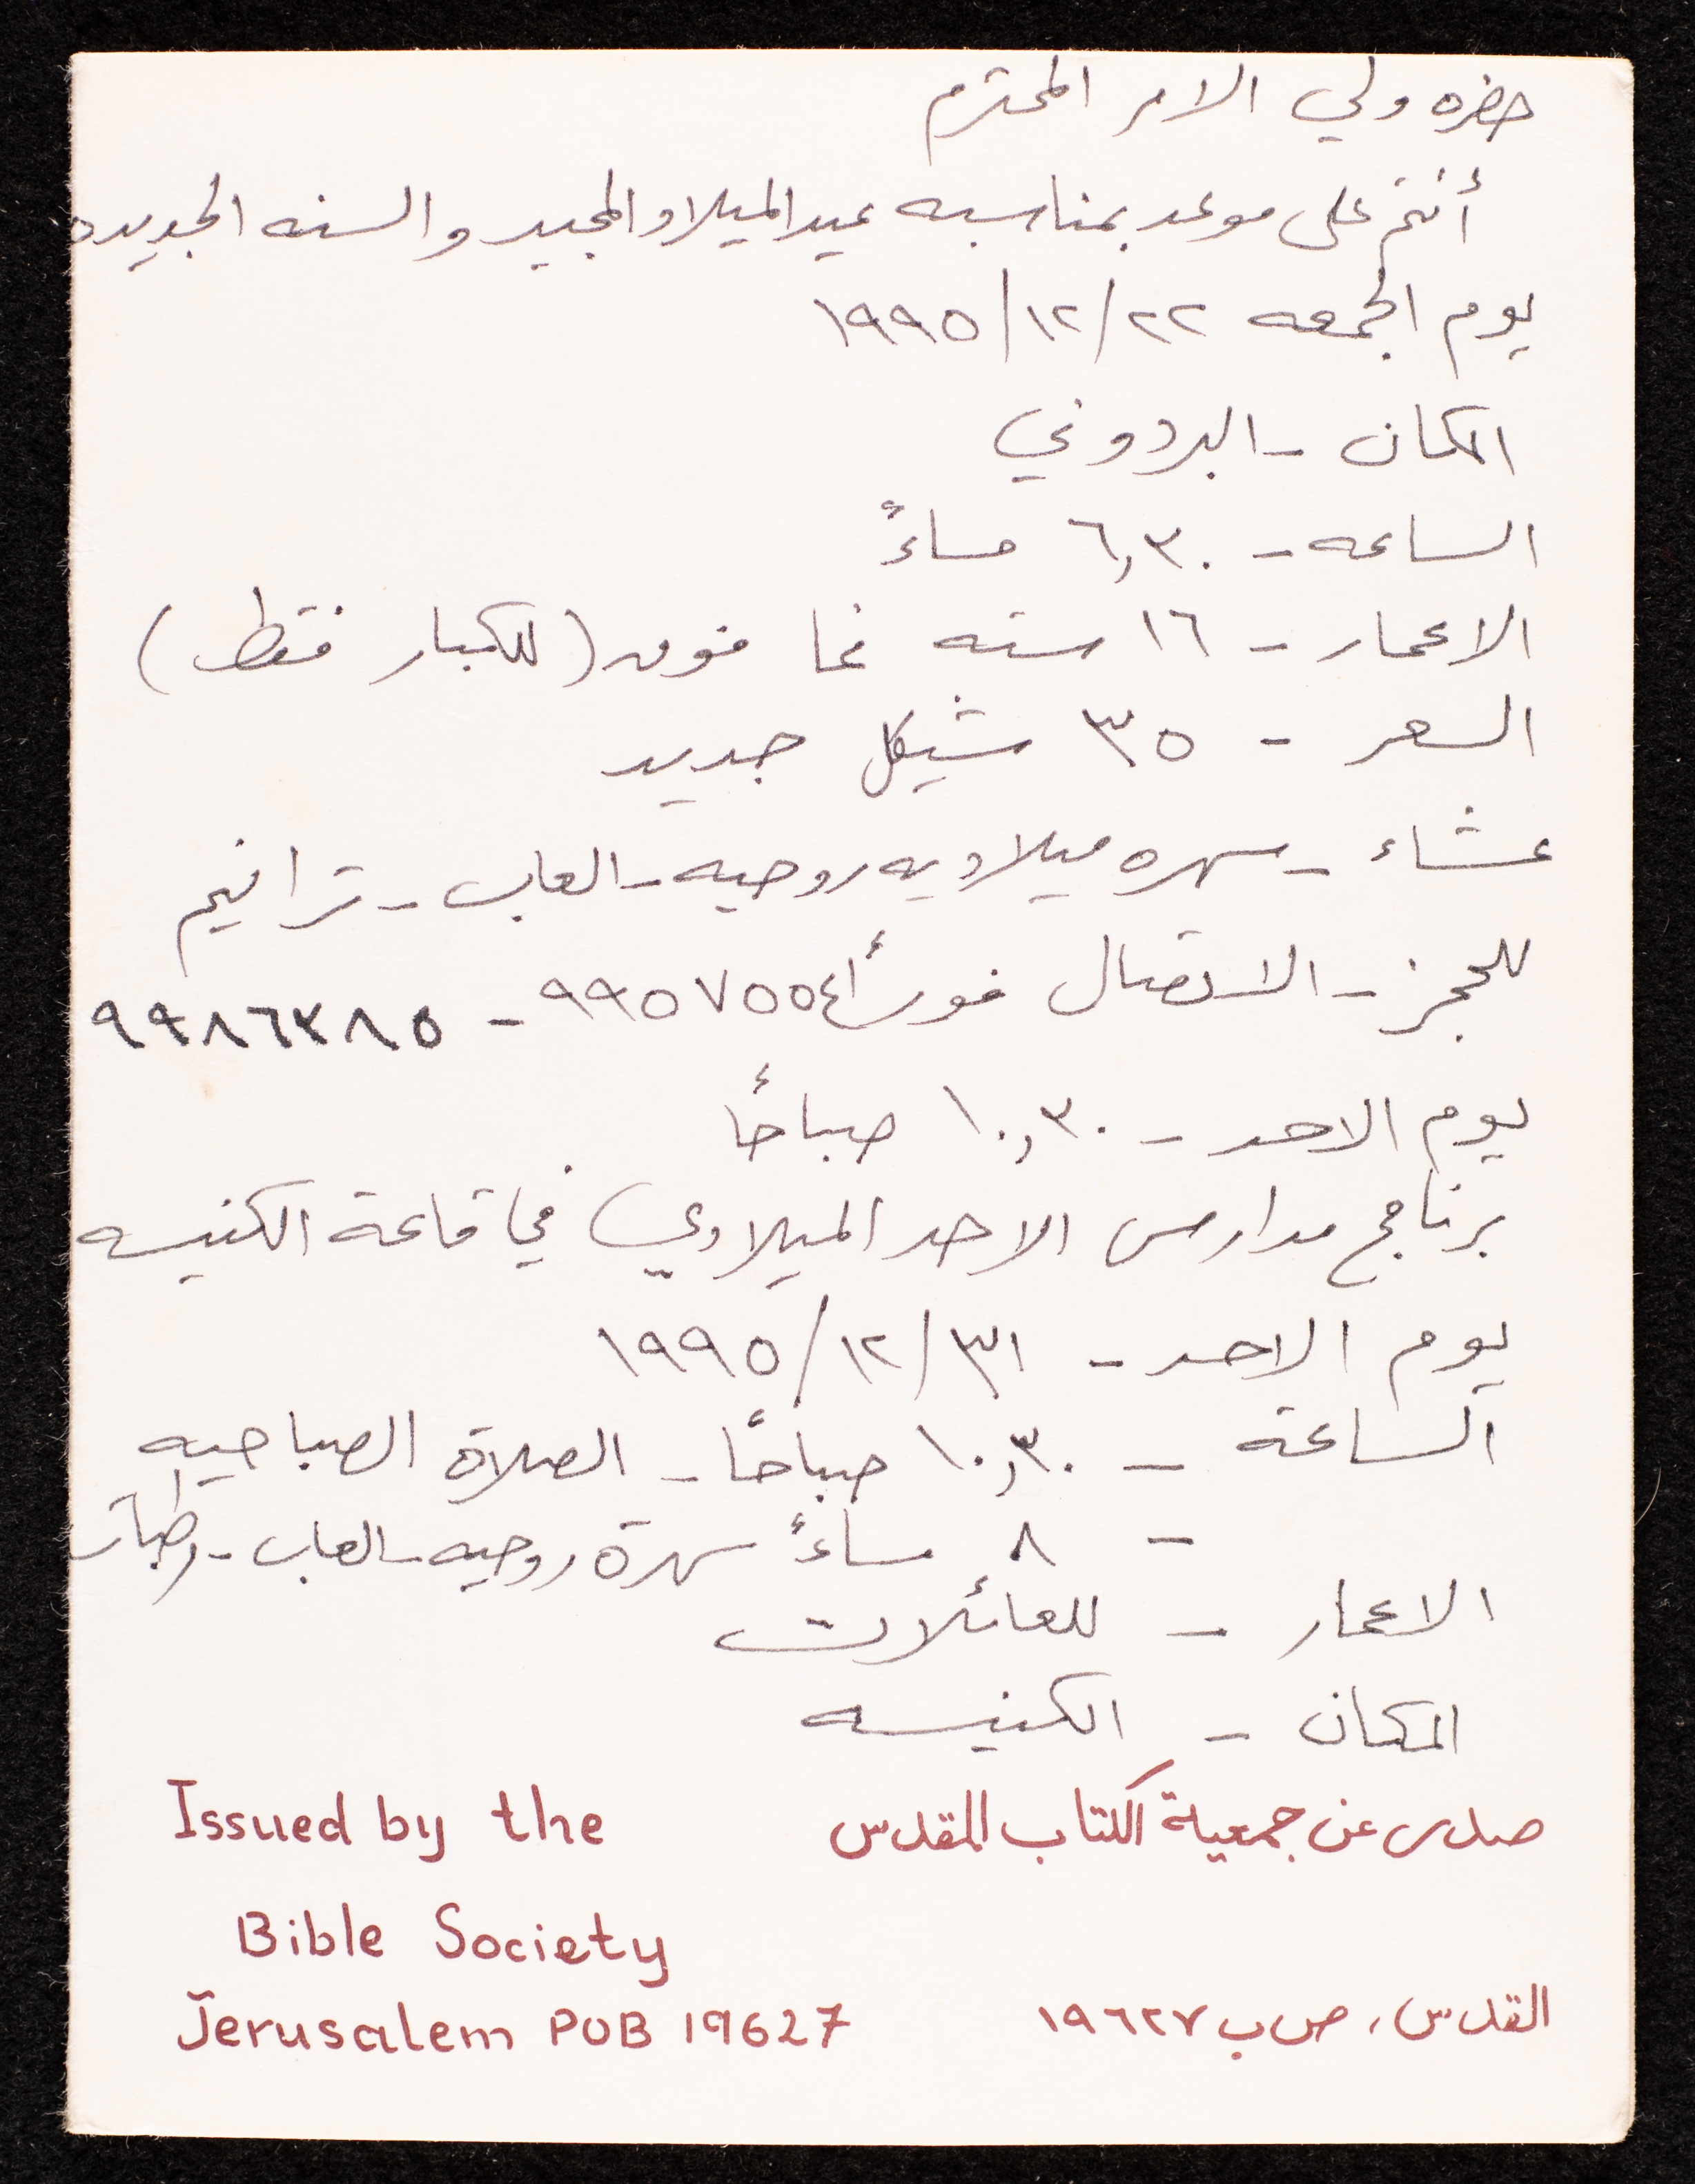 حضره ولي الامر المحترم
أنتم على موعد بمناسبه عيد الميلاد المجيد والسنه الجديده
يوم الجمعه ٢٢/١٢/١٩٩٥
المكان - البردوني
الساعه - ٦,٣٠ مساءً
الاعمار - ١٦ سنه فما فوق (للكبار فقط)
السعر - ٣٥ شيكل جديد
عشاء - سهره ميلاديه روحيه - العاب - ترانيم
للحجز - الاتصال فوراً ٩٩٥٧٥٥٤ - ٩٩٨٦٣٨٥
يوم الاحد - ١٠,٣٠ صباحاً
برنامج مدارس الاحد الميلادي في قاعة الكنيسه
يوم الاحد - ٣١/١٢/١٩٩٥
الساعة - ١٠,٣٠ صباحاً - الصلاة الصباحيه
- ٨ مساءً سهرة روحيه - العاب -
الاعمار - للعائلات
المكان - الكنيسه
صدر عن جمعية الكتاب المقدس
Issued by the
Bible Society
القدس، ص ب ١٩٦٢٧
Jerusalem POB 19627